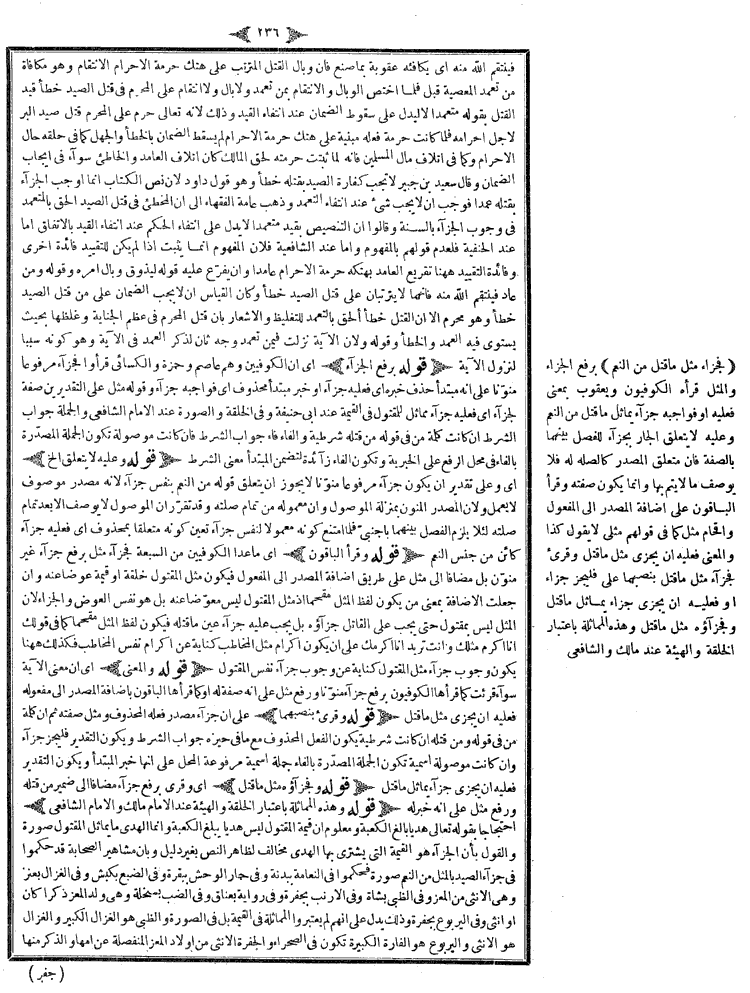 ﴿ ٢٣٦ ﴾
فينتقم الله منه اى يكافئه عقوبة بماصنع فان وبال القتل المترتب على هتك حرمة الاحرام الانتقام وهو مكافاة
من تعمد المعصية قبل فلما اختص الوبال والانتقام بمن تعمد ولابال ولاانتقام على المحرم فى قتل الصيد خطأ قيد
القتل بقوله متعمدا لايدل على سقوط الضمان عند انتفاء القيد وذلك لانه تعالى حرم على المحرم قتل صيد البر
لاجل احرامه فلما كانت حرمة فعله مبنية على هتك حرمة الاحرام لم يسقط الضمان بالخطأ والجهل كما فى حلقه حال
الاحرام وكما فى اتلاف مال المسلمين فانه لما ثبتت حرمته لحق المالك كان اتلاف العامد والخاطئ سوآء فى ايجاب
الضمان وقال سعيد بن جبير لاتجب كفارة الصيد بقتله خطأ وهو قول داود لان نص الكتاب انما اوجب الجزآء
بقتله عمدا فوجب ان لايجب شئ عند انتفاء التعمد وذهب عامة الفقهاء الى ان المخطئ فى قتل الصيد الحق بالمتعمد
فى وجوب الجزآء بالسنة وقالوا ان التنصيص بقيد متعمدا لايدل على انتفاء الحكم عند انتفاء القيد بالاتفاق اما
عند الحنفية فلعدم قولهم بالمفهوم واما عند الشافعية فلان المفهوم انما يثبت اذا لم يكن للتقييد فائدة اخرى
وفائدة التقييد ههنا تقريع العامد بهتكه حرمة الاحرام عامدا وان يفرّع عليه قوله ليذوق وبال امره وقوله ومن
عاد فينتقم الله منه فانهما لايترتبان على قتل الصيد خطأ وكان القياس ان لايجب الضمان على من قتل الصيد
خطأ وهو محرم الا ان القتل خطأ ألحق بالتعمد للتغليظ والاشعار بان قتل المحرم فى عظم الجناية وغلظها بحيث
يستوى فيه العمد والخطأ وقوله ولان الآية نزلت فيمن تعمد وجه ثان لذكر العمد فى الآية وهو كونه سببا
لنزول الآية ﴿ قوله برفع الجزآء ﴾ اى ان الكوفيين وهم عاصم وحمزة والكسائى قرأوا فجزآء مرفوعا
منوّنا على انه مبتدأ حذف خبره اى فعليه جزآء او خبر مبتدأ محذوف اى فواجبه جزآء وقوله مثل على التقديرين صفة
لجزآء اى فعليه جزآء مماثل للمقتول فى القيمة عند ابى حنيفة وفى الخلقة والصورة عند الامام الشافعى والجملة جواب
الشرط ان كانت كلمة من فى قوله من قتله شرطية والفاء فاء جواب الشرط فان كانت موصولة تكون الجملة المصدّرة
بالفاء فى محل الرفع على الخبرية وتكون الفاء زآئدة لتضمن المبتدأ معنى الشرط ﴿ قوله وعليه لايتعلق الخ ﴾
اى وعلى تقدير ان يكون جزآء مرفوعا منوّنا لايجوز ان يتعلق قوله من النعم بنفس جزآء لانه مصدر موصوف
لايعمل ولان المصدر المنون بمنزلة الموصول وان معموله من تمام صلته وقد تقرّر ان الموصول لايوصف الابعد تمام
صلته لئلا يلزم الفصل بينهما باجنبىّ فلما امتنع كونه معمولا لنفس جزآء تعين كونه متعلقا بمحذوف اى فعليه جزآء
كائن من جنس النعم ﴿ قوله وقرأ الباقون ﴾ اى ماعدا الكوفيين من السبعة فجزآء مثل برفع جزآء غير
منوّن بل مضافا الى مثل على طريق اضافة المصدر الى المفعول فيكون مثل المقتول خلقة او قيمة عوضا عنه وان
جعلت الاضافة بمعنى من يكون لفظ المثل مقحما اذ مثل المقتول ليس معوّضا عنه بل هو نفس العوض والجزاء لان
المثل ليس بمقتول حتى يجب على القاتل جزآؤه بل يجب عليه جزآء عين ماقتله فيكون لفظ المثل مقحما كما فى قولك
انا اكرم مثلك وانت تريد انا اكرمك على ان يكون اكرام مثل المخاطب كناية عن اكرام نفس المخاطب فكذلك ههنا
يكون وجوب جزآء مثل المقتول كناية عن وجوب جزآء نفس المقتول ﴿ قوله والمعنى ﴾ اى ان معنى الآية
سوآء قرئت كما قرأها الكوفيون برفع جزآء منوّنا ورفع مثل على انه صفة له او كما قرأها الباقون باضافة المصدر الى مفعوله
فعليه ان يجزى مثل ماقتل ﴿ قوله وقرئ بنصبهما ﴾ على ان جزآء مصدر فعله المحذوف ومثل صفته ثم ان كلمة
من فى قوله ومن قتله ان كانت شرطية يكون الفعل المحذوف مع مافى حيزه جواب الشرط ويكون التقدير فليجز جزآء
وان كانت موصولة اسمية تكون الجملة المصدّرة بالفاء جملة اسمية مرفوعة المحل على انها خبر المبتدأ ويكون التقدير
فعليه ان يجزى جزآء يماثل ماقتل ﴿ قوله وفجزآؤه مثل ماقتل ﴾ اى وقرى برفع جزآء مضافا الى ضمير من قتله
ورفع مثل على انه خبر له ﴿ قوله وهذه المماثلة باعتبار الخلقة والهيئة عند الامام مالك والامام الشافعى ﴾
احتجاجا بقوله تعالى هديا بالغ الكعبة ومعلوم ان قيمة المقتول ليس هديا يبلغ الكعبة وانما الهدى مايماثل المقتول صورة
والقول بأن الجزآء هو القيمة التى يشترى بها الهدى مخالف لظاهر النص بغير دليل وبان مشاهير الصحابة قد حكموا
فى جزآء الصيد بالمثل من النعم صورة فحكموا فى النعامة ببدنة وفى حمار الوحش ببقرة وفى الضبع بكبش وفى الغزال بعنز
وهى الانثى من المعز وفى الظبى بشاة وفى الارنب بجفرة وفى رواية بعناق وفى الضب بسخلة وهى ولد المعز ذكرا كان
او انثى وفى اليربوع بجفرة وذلك يدل على انهم لم يعتبروا المماثلة فى القيمة بل فى الصورة والظبى هو الغزال الكبير والغزال
هو الانثى واليربوع هو الفارة الكبيرة تكون فى الصحراء والجفرة الانثى من اولاد المعز المنفصلة عن امها والذكر منها
( جفر )
( فجزاء مثل ماقتل من النعم ) برفع الجزاء
والمثل قرأه الكوفيون ويعقوب بمعنى
فعليه او فواجبه جزآء يماثل ماقتل من النعم
وعليه لايتعلق الجار بجزآء للفصل بينهما
بالصفة فان متعلق المصدر كالصله له فلا
يوصف مالايتم بها وانما يكون صفته وقرأ
الباقون على اضافة المصدر الى المفعول
واقحام مثل كما فى قولهم مثلى لايقول كذا
والمعنى فعليه ان يجزى مثل ماقتل وقرئ
فجزآء مثل ماقتل بنصبهما على فليجز جزاء
او فعليه ان يجزى جزاء يماثل ماقتل
وفجزآؤه مثل ماقتل وهذه المماثلة باعتبار
الخلقة والهيئة عند مالك والشافعى